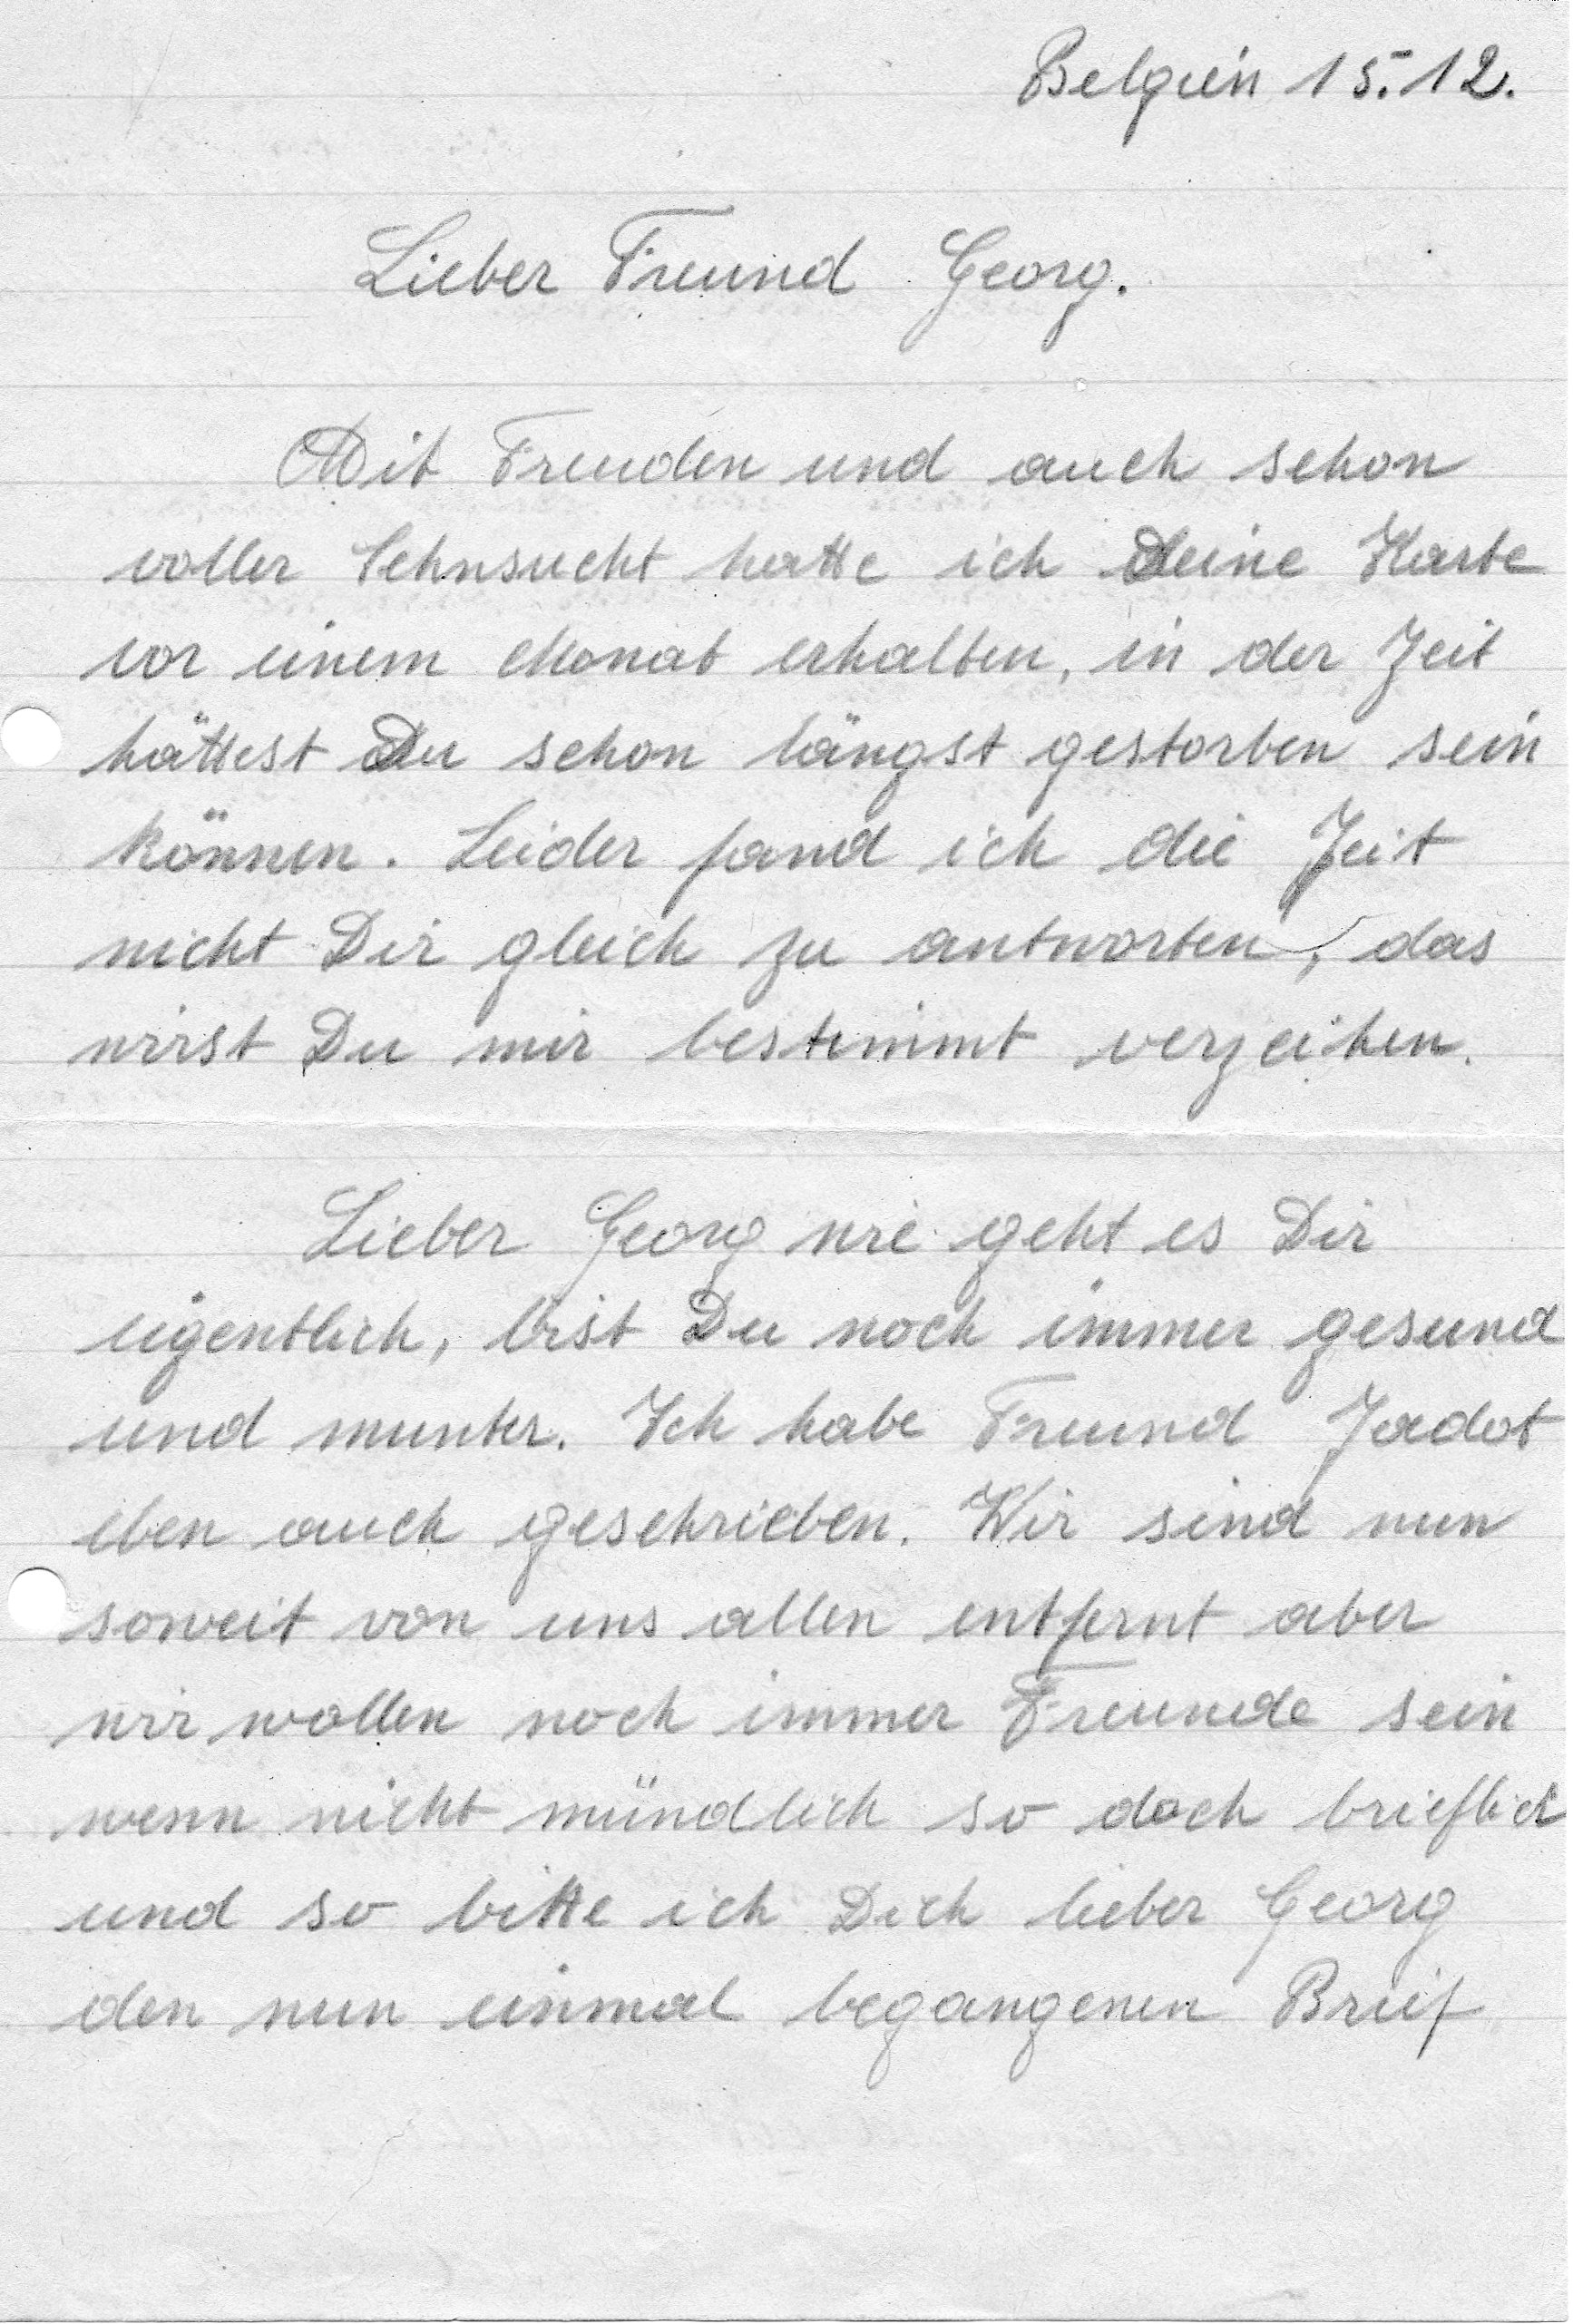 Belgien 15.12.
Lieber Freund Georg.
Mit Freuden und auch schon
voller Sehnsucht hatte ich Deine Karte
vor einem Monat erhalten, in der Zeit
hättest Du schon längst gestorben sein
können. Leider fand ich die Zeit
nicht Dir gleich zu antworten, das
wirst Du mir bestimmt verzeihen.
Lieber Georg wie geht es Dir
eigentlich, bist Du noch immer gesund
und munter. Ich habe Freund Jadot
eben auch geschrieben. Wir sind nun
soweit von uns allen entfernt aber
wir wollen noch immer Freunde sein
wenn nicht mündlich so doch brieflich
und so bitte ich Dich lieber Georg
den nun einmal begangenen Brief